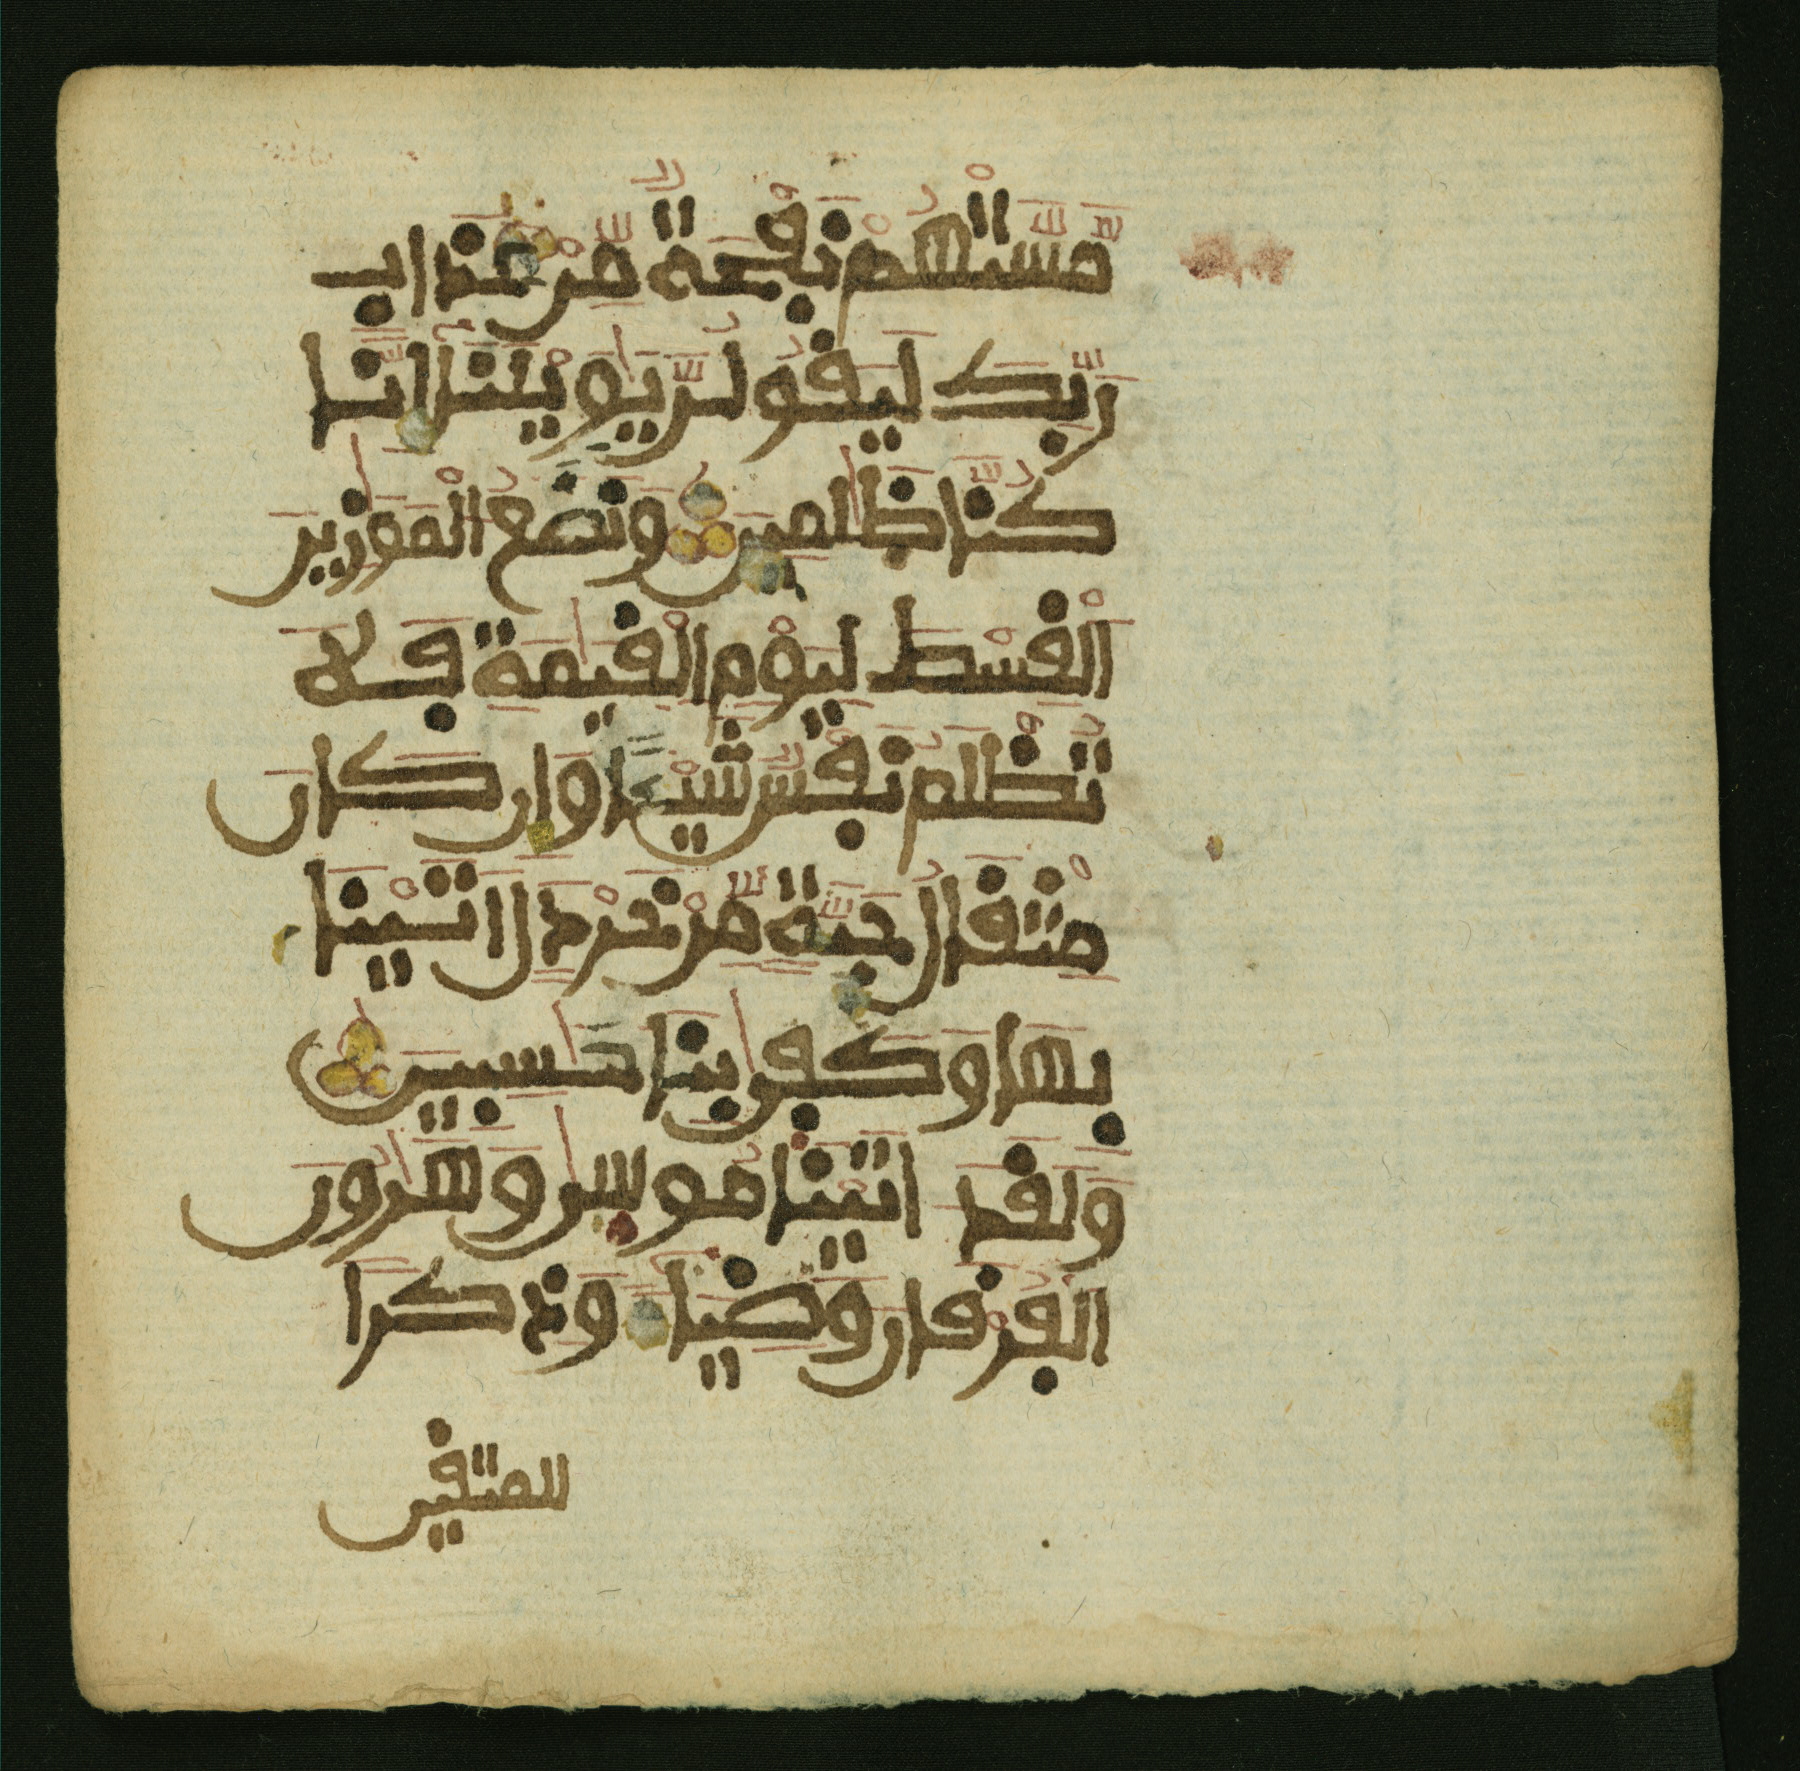 مَّسَّتْهُمْ نَفْحَةٌ مِّنْ عَذَابِ
رَبِّكَ لَيَقُولُنَّ يَوَيْلَنَا إِنَّا
كُنَّا ظَلِمِينَ وَنَضَعُ الْمَوَزِينَ
الْقِسْطَ لِيَوْمِ الْقِيَمَةِ فَلَا
تُظْلَمُ نَفْسٌ شَيْـًٔا وَإِن كَانَ
مِثْقَالُ حَبَّةٍ مِّنْ خَرْدَلٍ أَتَيْنَا
بِهَا وَكَفَى بِنَا حَسِبِينَ
وَلَقَدْ ءَاتَيْنَا مُوسَى وَهَرُونَ
الْفُرْقَانَ وَضِيَاءً وَذِكْرًا
للمتقين